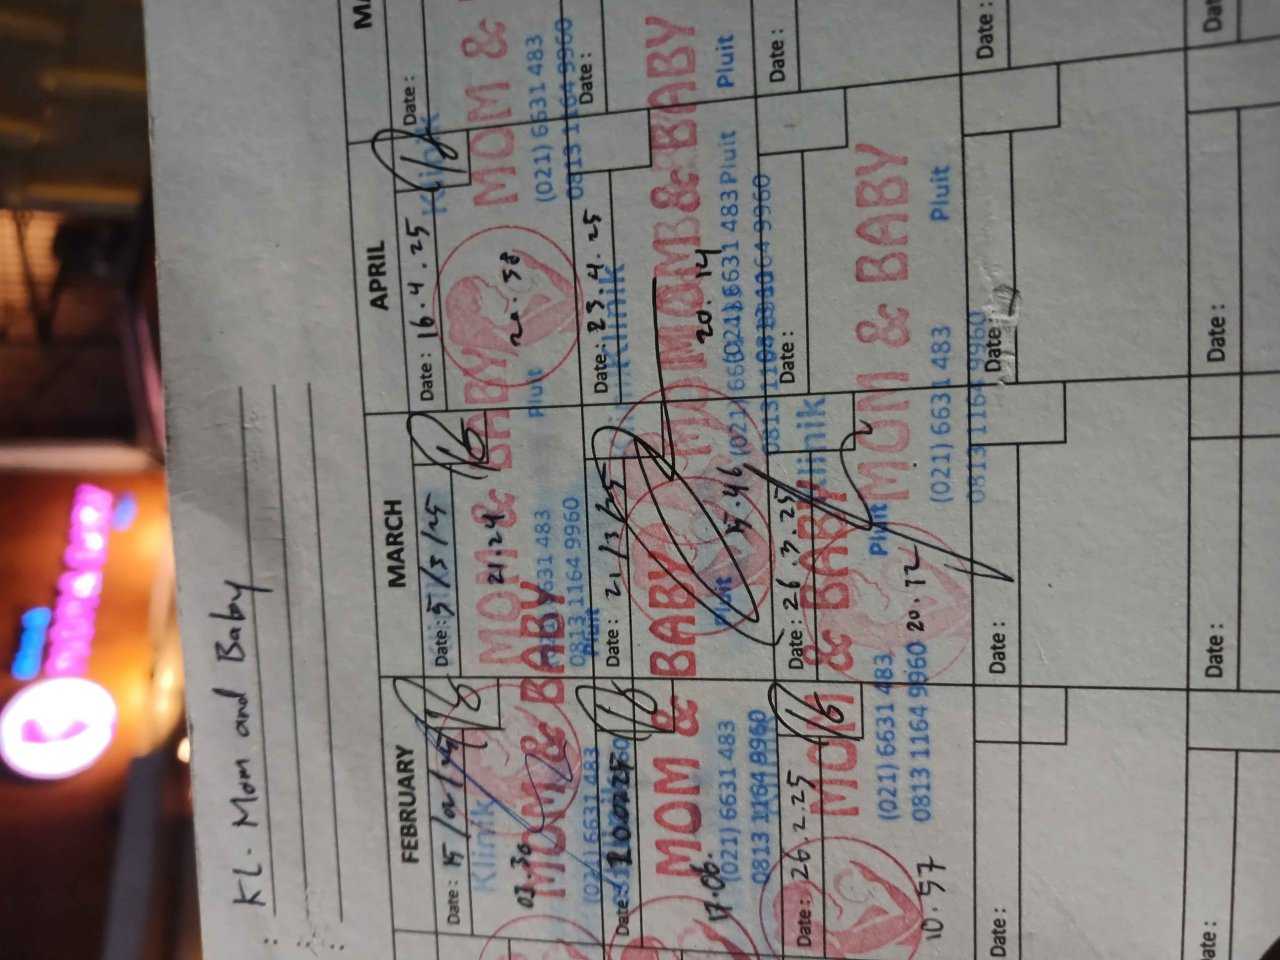 KL. Mom and Baby
FEBRUARY
MARCH
APRIL
MA
Date: 15/02/25
Klinik
MOM & BABY
Pluit
(021) 6631 483
0813 1164 9960
03.30
Date: 5/3/25
MOM & BABY
Pluit
(021) 6631 483
0813 1164 9960
21.24
Date: 16.4.25
Klinik
MOM &
(021) 6631 483
0813 1164 9960
20.58
Date:
Date:
MOM & BABY
Pluit
(021) 6631 483
0813 1164 9960
17.06.
Date: 21/3/25
MOM & BABY
Pluit
(021) 6631 483
15.46
Date: 23.4.25
Klinik
MOM & BABY
Pluit
6631 483
20.14
Date:
Date: 26.2.25
MOM & BABY
Pluit
(021) 6631 483
0813 1164 9960
10.57
Date: 26.3.25
Klinik
MOM & BABY
Pluit
(021) 6631 483
0813 1164 9960
20.12
Date:
Date:
Date:
Date:
Date:
Date:
ate:
Date:
Date:
Dat